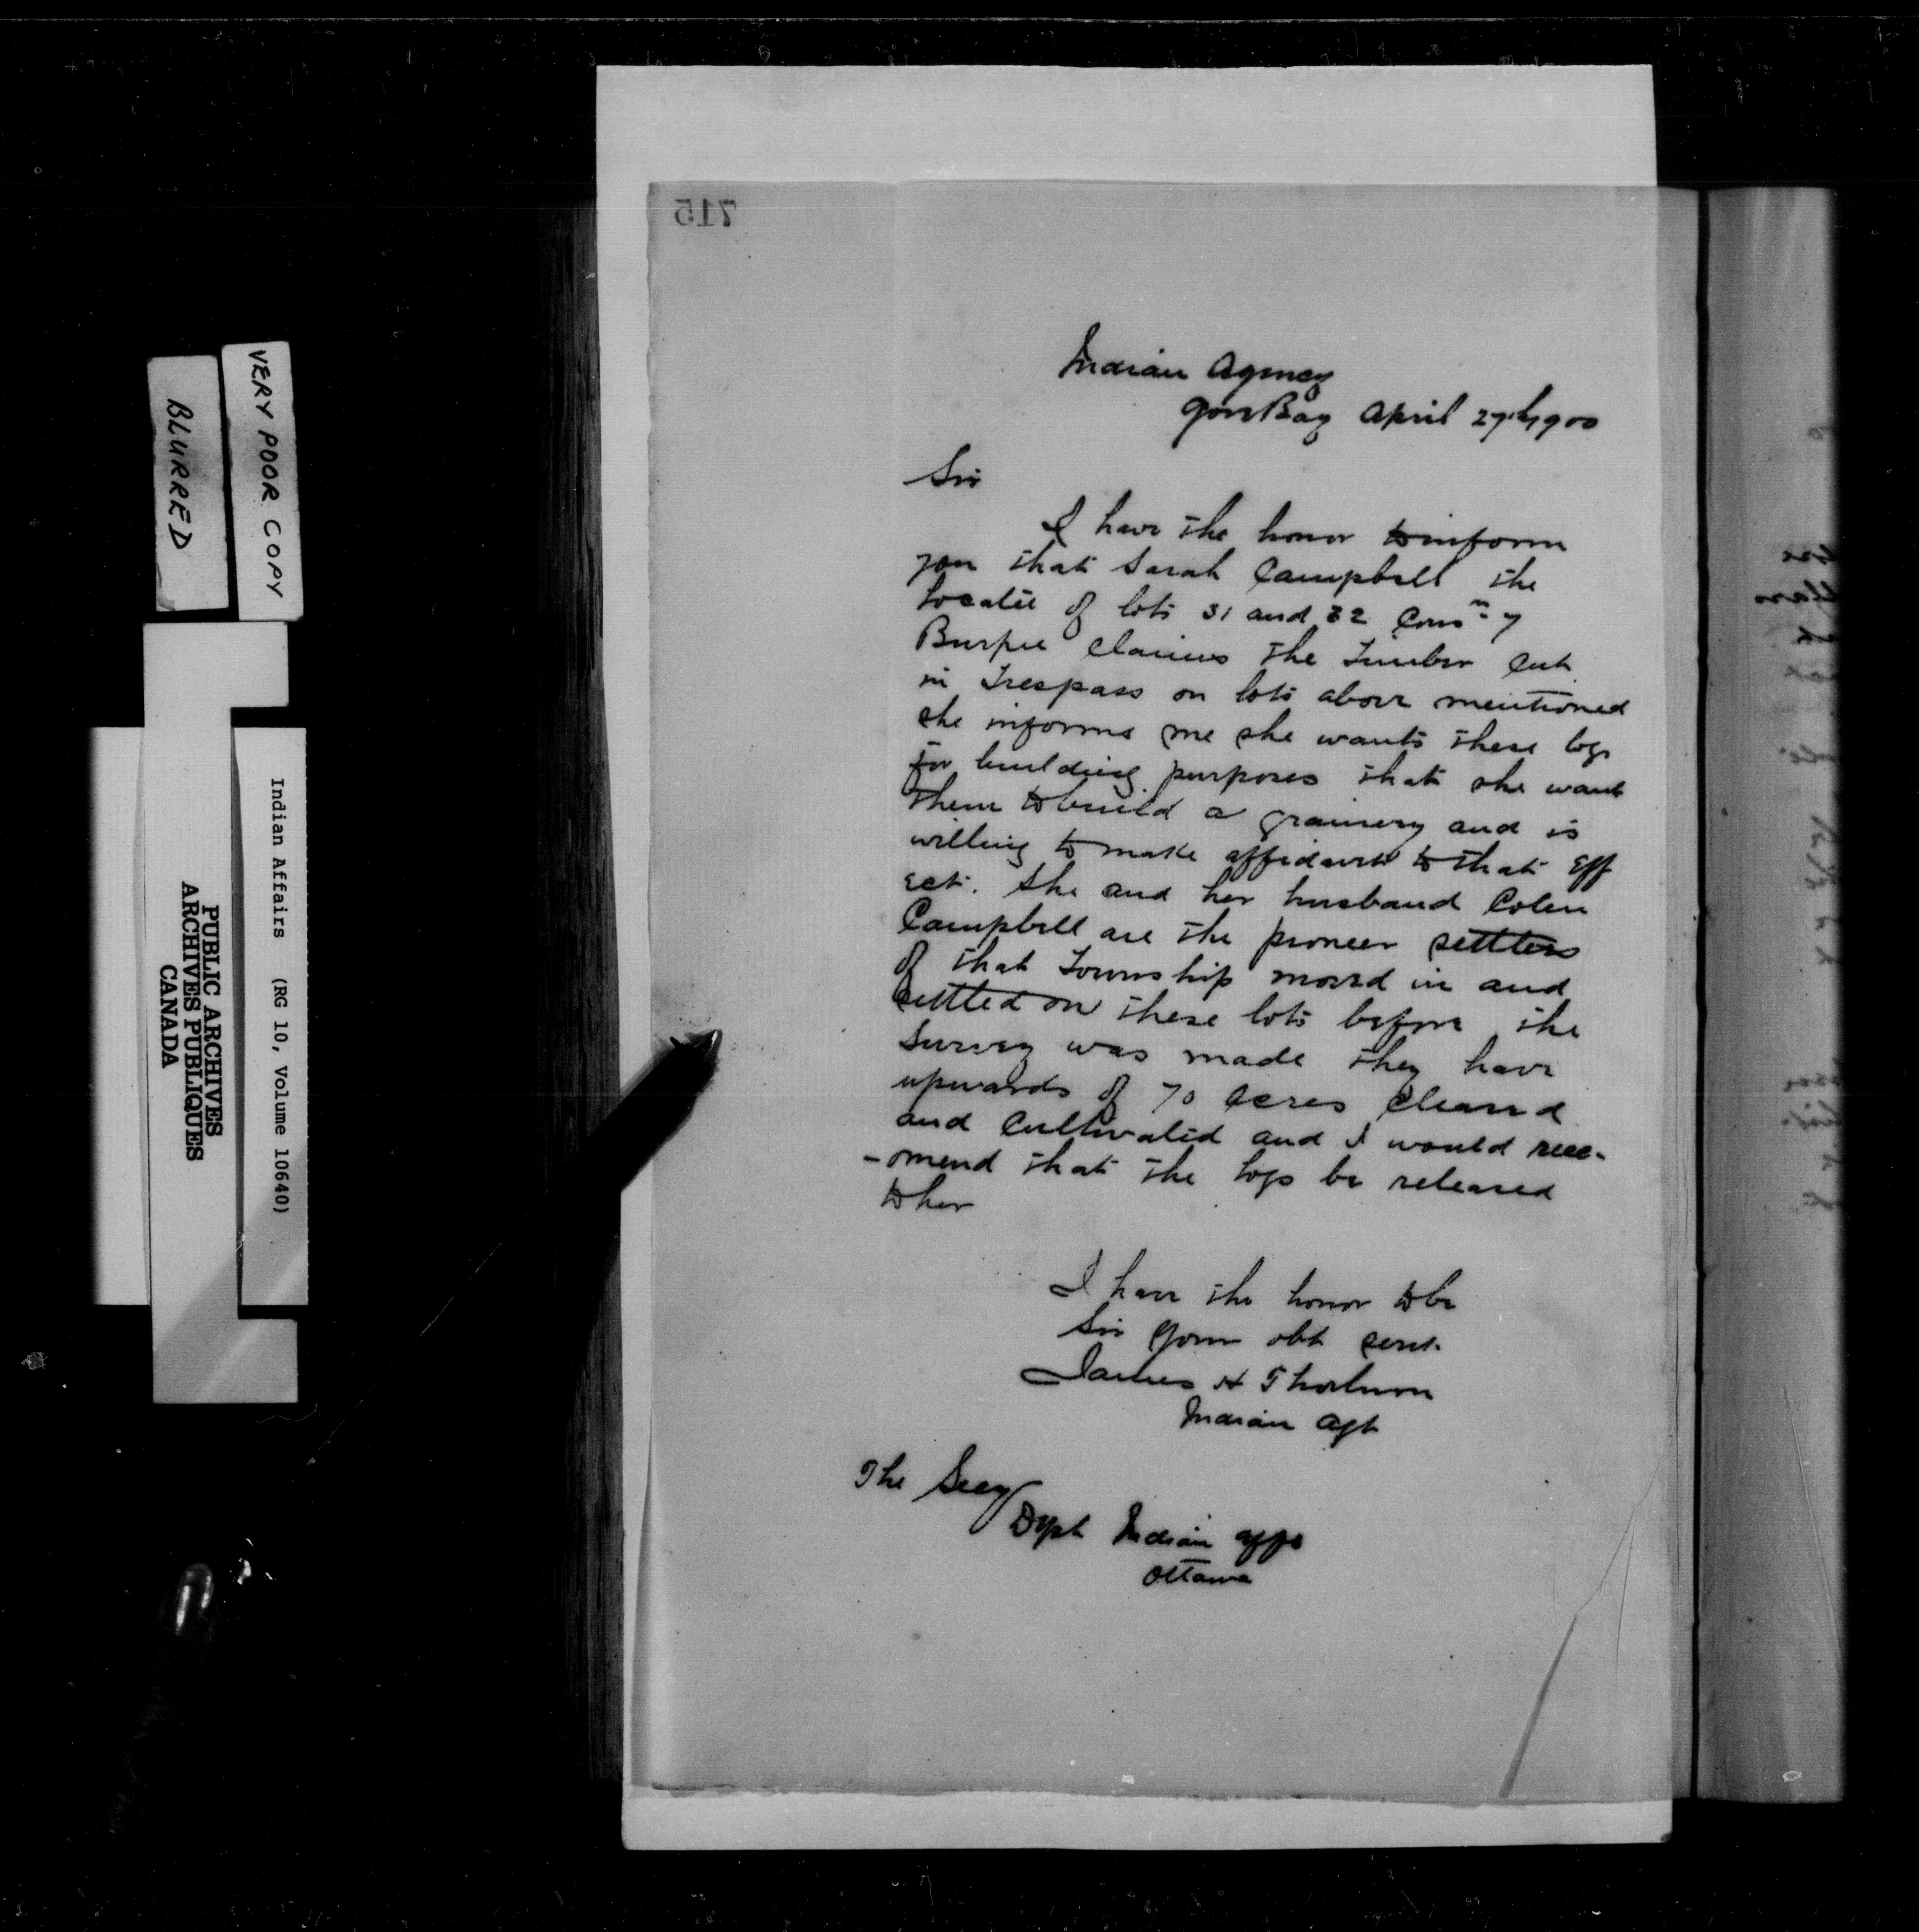 715
Indian Agency
Gore Bay April 27th 1900
Sir
I have the honor to inform
you that Sarah Campbell the
Locatee of lots 31 and 32 Conn 7
Burpee claims the Timber Cut
in Trespass on lots above mentioned
she informs me she wants these logs
for building purposes that she want
them to build a grainery and is
willing to make affidavit to that Eff
ect. She and her husband Colen
Campbell are the pioneer settlers
of that Township moved in and
settled on these lots before the
Survey was made they have
upwards of 70 acres cleared
and Cultivated and I would recc-
-omend that the logs be released
to her
I have the honor to be
Sir your obt servt.
James H Thorburn
Indian Agt
The Secy
Dept Indian Affs
Ottawa
VERY POOR COPY
BLURRED
Indian Affairs (RG 10, Volume 10640)
PUBLIC ARCHIVES
ARCHIVES PUBLIQUES
CANADA